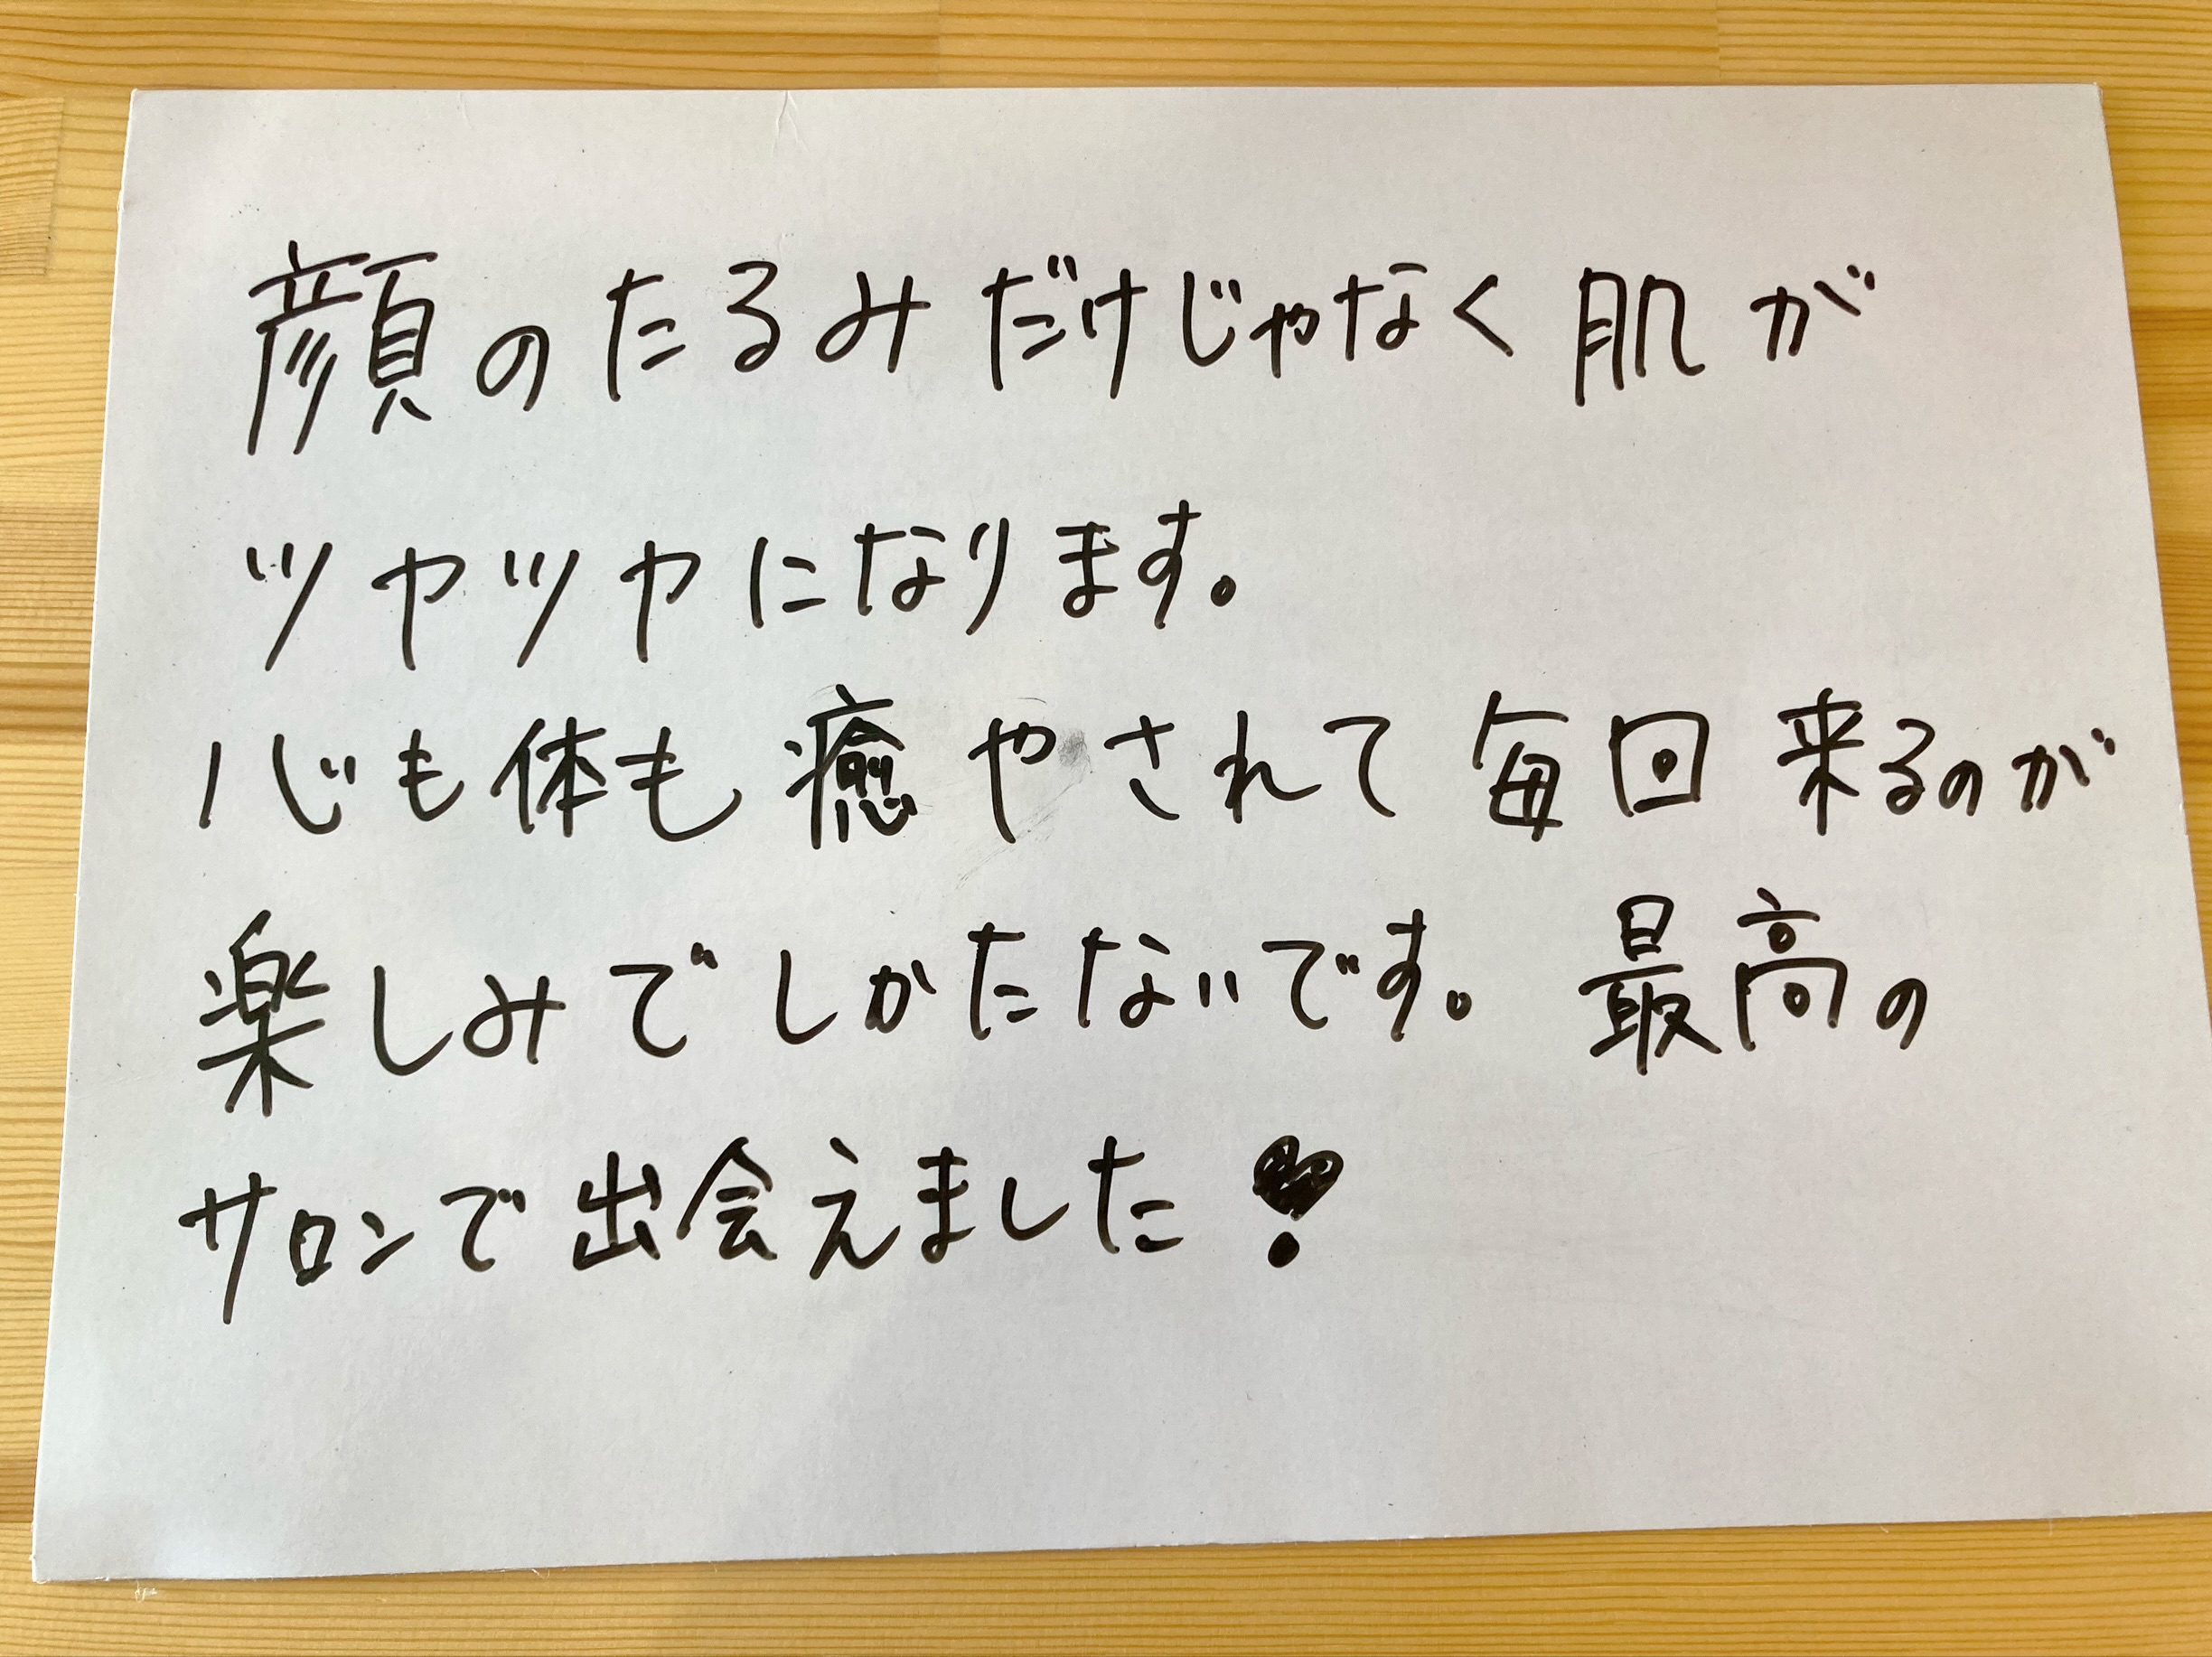 顔のたるみだけじゃなく肌が
ツヤツヤになります。
心も体も癒やされて毎回来るのが
楽しみでしかたないです。最高の
サロンで出会えました❣